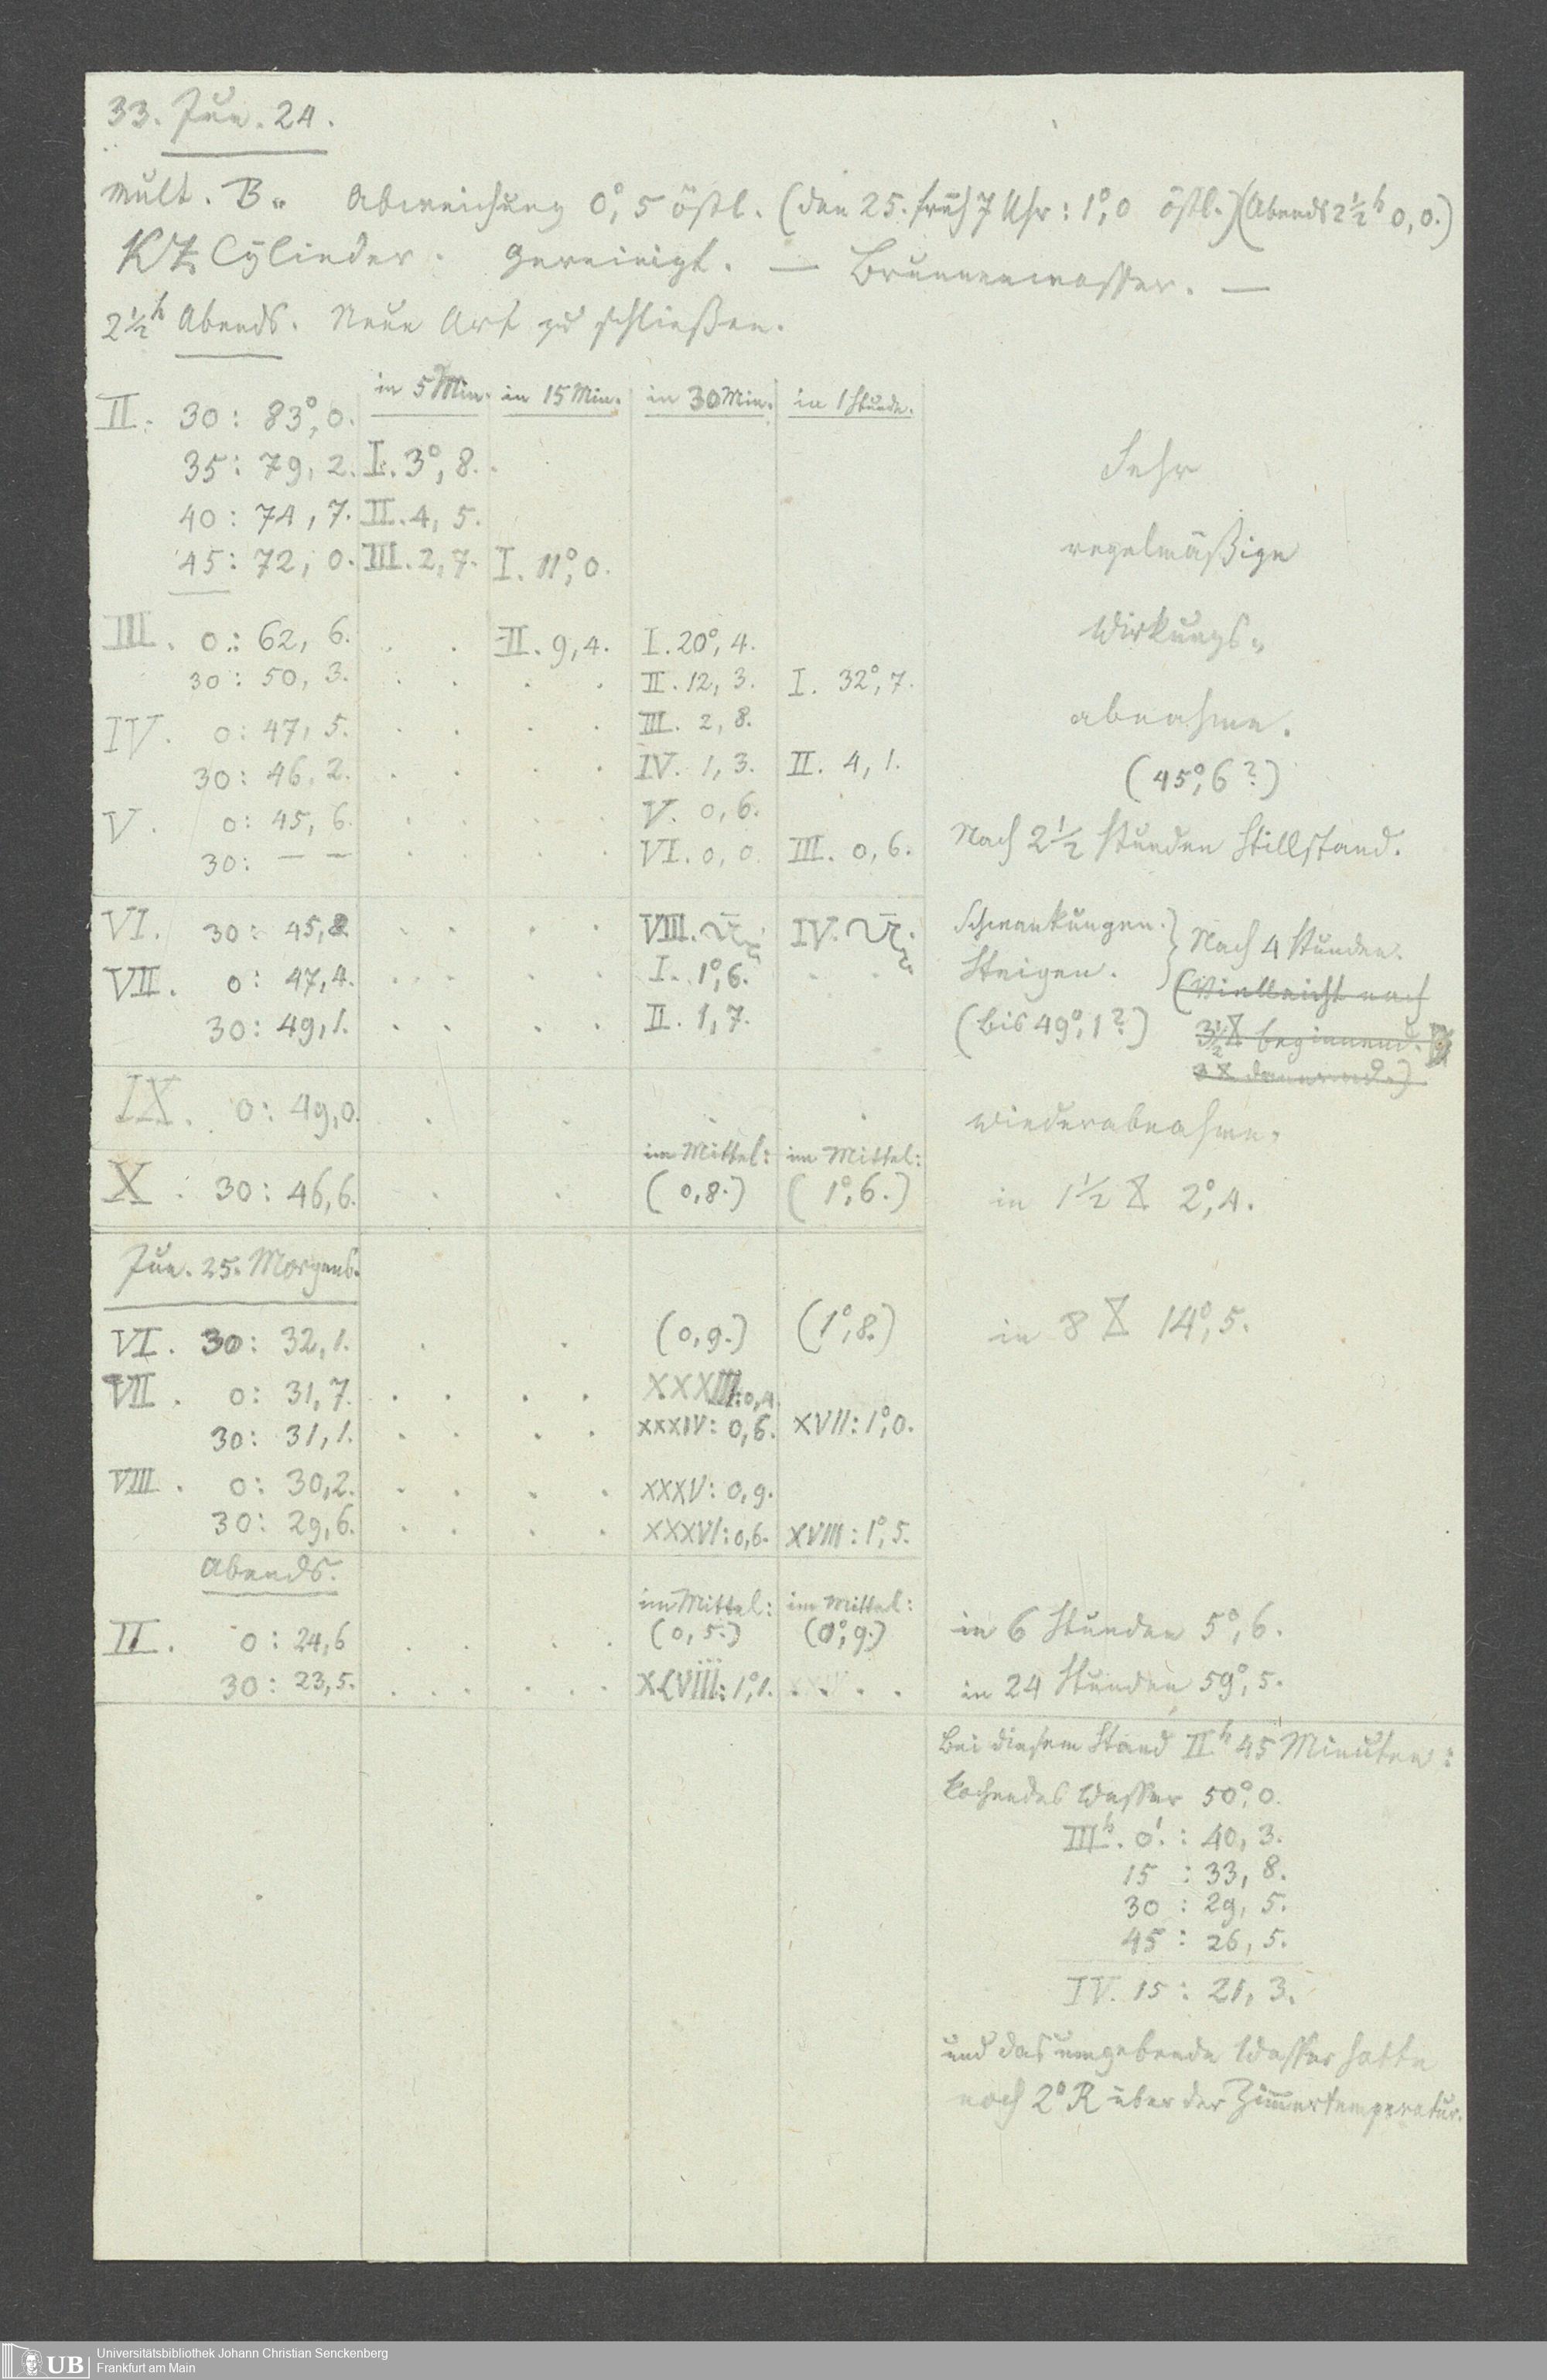 33. Jun. 24.
Mult. B. Abweichung 0°,5 östl. (den 25. früh 7 Uhr: 1°,0 östl.) (Abends 2½h 0,0.)
KZ Cylinder. Gereinigt. — Brunnenwasser. —
2½h Abends. Neue Art zu schließen.
in 5 Min. in 15 Min. in 30 Min. in 1 Stunde.
II. 30: 83°,0.
35: 79,2. I. 3°,8. Sehr
40: 74,7. II. 4,5.
45: 72,0. III. 2,7. I. 11°,0. regelmäßige
III. 0: 62,6. . . II. 9,4. I. 20°,4. Wirkungs-
30: 50,3. . . . . II. 12,3. I. 32°,7.
IV. 0: 47,5. . . . . III. 2,8. abnahme.
30: 46,2. . . . . IV. 1,3. II. 4,1. (45°,6?)
V. 0: 45,6. . . . . V. 0,6.
30: — — . . . . VI. 0,0. III. 0,6. Nach 2½ Stunden Stillstand.
VI. 30: 45,8. . . . . VIII. IV. Schwankungen. } Nach 4 Stunden.
VII. 0: 47,4. . . . . I. 1°,6. . . Steigen. (Vielleicht nach
30: 49,1. . . . . II. 1,7. (bis 49°,1?) 3½ beginnend.
dauernd.)
IX. 0: 49,0. . . . . Wiederabnahme.
im Mittel: im Mittel:
X. 30: 46,6. . . (0,8.) (1°,6.) in 1½ 2°,4.
Jun. 25. Morgens.
VI. 30: 32,1. . . (0,9.) (1°,8.) in 8 14°,5.
VII. 0: 31,7. . . . . XXXIII: 0,4.
30: 31,1. . . . . XXXIV: 0,6. XVII: 1°,0.
VIII. 0: 30,2. . . . . XXXV: 0,9.
30: 29,6. . . . . XXXVI: 0,6. XVIII: 1°,5.
Abends.
im Mittel: im Mittel:
II. 0: 24,6 . . . . (0,5.) (0°,9.) in 6 Stunden 5°,6.
30: 23,5. . . . . . . XLVIII: 1°,1. . . . . in 24 Stunden 59°,5.
Bei diesem Stand IIh 45 Minuten:
kochendes Wasser 50°,0.
IIIh. 0'.: 40,3.
15 : 33,8.
30 : 29,5.
45 : 26,5.
IV. 15 : 21,3.
und das umgebende Wasser hatte
noch 2° R über der Zimmertemperatur.
UB Universitätsbibliothek Johann Christian Senckenberg
Frankfurt am Main